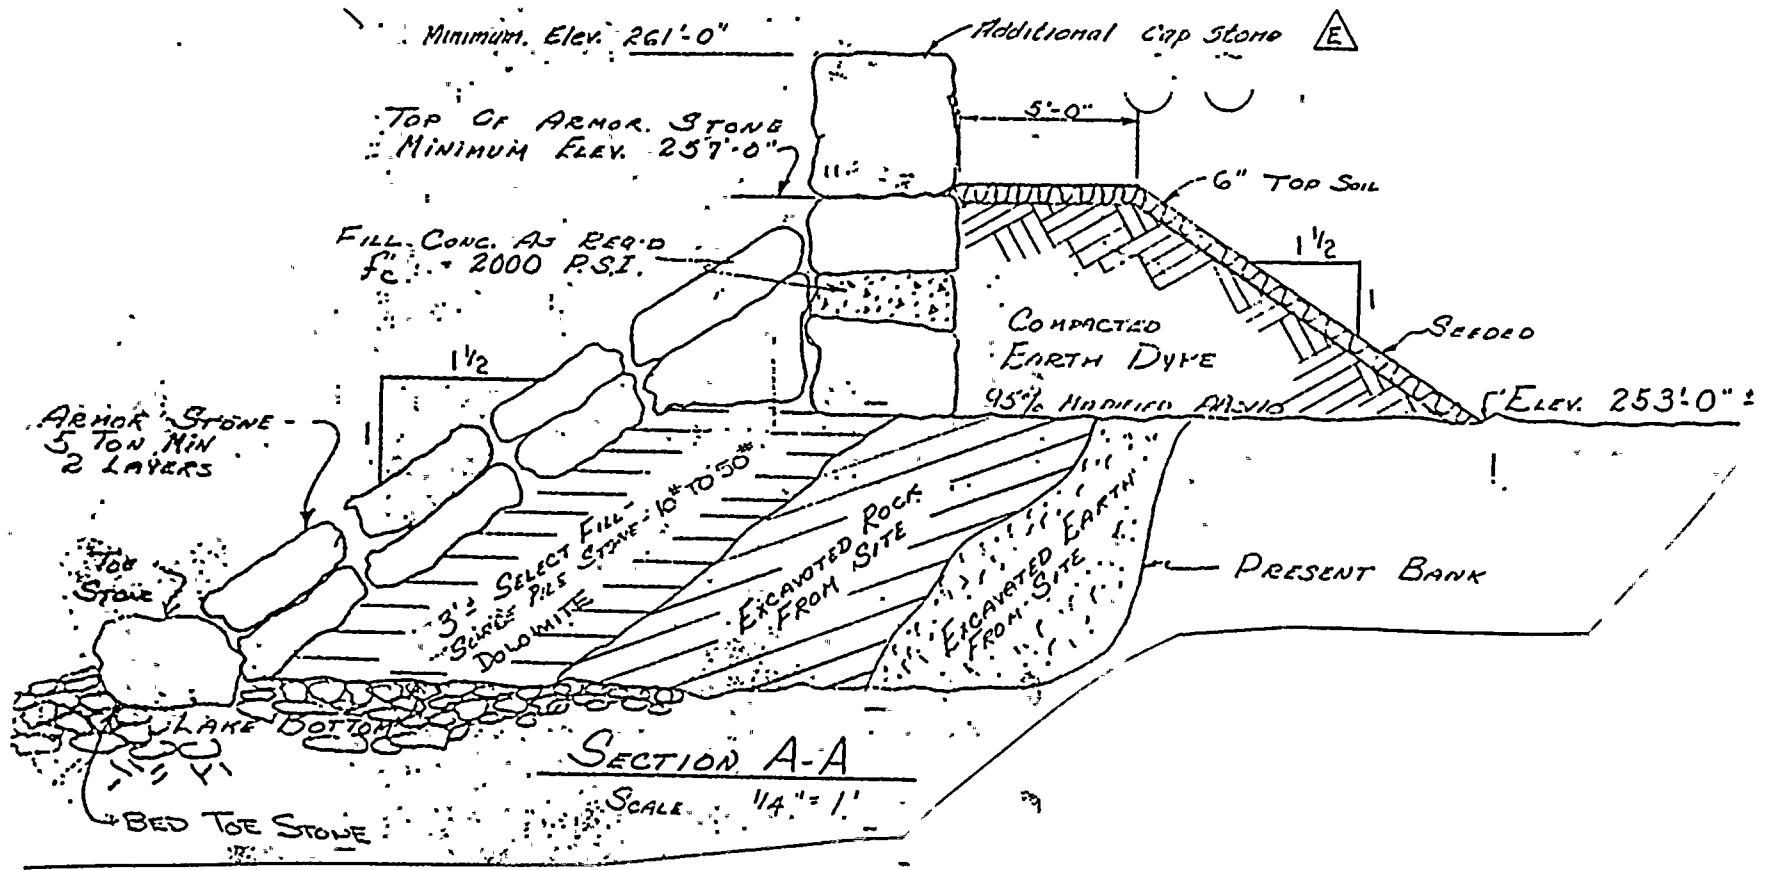 Minimum. Elev. 261'-0"
Additional Cap Stone
E
TOP OF ARMOR STONE
MINIMUM ELEV. 257'-0"
5'-0"
6" TOP SOIL
FILL CONC. AS REQ'D
f'c = 2000 P.S.I.
1 1/2
1
COMPACTED
EARTH DYKE
95% MODIFIED
SEEDED
ELEV. 253'-0" ±
1 1/2
1
ARMOR STONE -
5 TON MIN
2 LAYERS
3'± SELECT FILL -
STONE - 10# TO 50#
DOLOMITE
EXCAVATED ROCK
FROM SITE
EXCAVATED EARTH
FROM SITE
PRESENT BANK
TOE
STONE
LAKE BOTTOM
BED TOE STONE
SECTION A-A
SCALE 1/4" = 1'